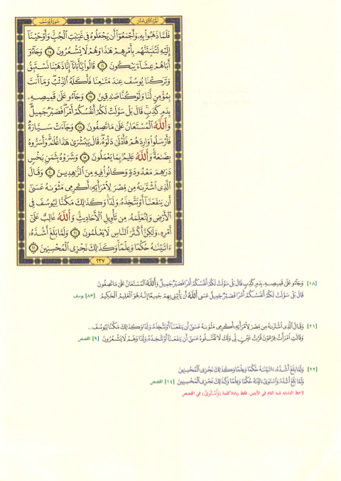 فَلَمَّا ذَهَبُوا۟ بِهِۦ وَأَجْمَعُوٓا۟ أَن يَجْعَلُوهُ فِى غَيَـٰبَتِ ٱلْجُبِّ وَأَوْحَيْنَآ
إِلَيْهِ لَتُنَبِّئَنَّهُم بِأَمْرِهِمْ هَـٰذَا وَهُمْ لَا يَشْعُرُونَ ١٥ وَجَآءُوٓ
أَبَاهُمْ عِشَآءً يَبْكُونَ ١٦ قَالُوا۟ يَـٰٓأَبَانَآ إِنَّا ذَهَبْنَا نَسْتَبِقُ
وَتَرَكْنَا يُوسُفَ عِندَ مَتَـٰعِنَا فَأَكَلَهُ ٱلذِّئْبُ وَمَآ أَنتَ
بِمُؤْمِنٍ لَّنَا وَلَوْ كُنَّا صَـٰدِقِينَ ١٧ وَجَآءُو عَلَىٰ قَمِيصِهِۦ
بِدَمٍ كَذِبٍ قَالَ بَلْ سَوَّلَتْ لَكُمْ أَنفُسُكُمْ أَمْرًا فَصَبْرٌ جَمِيلٌ
وَٱللَّهُ ٱلْمُسْتَعَانُ عَلَىٰ مَا تَصِفُونَ ١٨ وَجَآءَتْ سَيَّارَةٌ
فَأَرْسَلُوا۟ وَارِدَهُمْ فَأَدْلَىٰ دَلْوَهُۥ قَالَ يَـٰبُشْرَىٰ هَـٰذَا غُلَـٰمٌ وَأَسَرُّوهُ
بِضَـٰعَةً وَٱللَّهُ عَلِيمٌۢ بِمَا يَعْمَلُونَ ١٩ وَشَرَوْهُ بِثَمَنٍۭ بَخْسٍ
دَرَٰهِمَ مَعْدُودَةٍ وَكَانُوا۟ فِيهِ مِنَ ٱلزَّٰهِدِينَ ٢٠ وَقَالَ
ٱلَّذِى ٱشْتَرَىٰهُ مِن مِّصْرَ لِٱمْرَأَتِهِۦٓ أَكْرِمِى مَثْوَىٰهُ عَسَىٰٓ
أَن يَنفَعَنَآ أَوْ نَتَّخِذَهُۥ وَلَدًا وَكَذَٰلِكَ مَكَّنَّا لِيُوسُفَ فِى
ٱلْأَرْضِ وَلِنُعَلِّمَهُۥ مِن تَأْوِيلِ ٱلْأَحَادِيثِ وَٱللَّهُ غَالِبٌ عَلَىٰٓ
أَمْرِهِۦ وَلَـٰكِنَّ أَكْثَرَ ٱلنَّاسِ لَا يَعْلَمُونَ ٢١ وَلَمَّا بَلَغَ أَشُدَّهُۥٓ
ءَاتَيْنَـٰهُ حُكْمًا وَعِلْمًا وَكَذَٰلِكَ نَجْزِى ٱلْمُحْسِنِينَ ٢٢
٢٣٧
[١٨] وَجَآءُو عَلَىٰ قَمِيصِهِۦ بِدَمٍ كَذِبٍ قَالَ بَلْ سَوَّلَتْ لَكُمْ أَنفُسُكُمْ أَمْرًا فَصَبْرٌ جَمِيلٌ وَٱللَّهُ ٱلْمُسْتَعَانُ عَلَىٰ مَا تَصِفُونَ
قَالَ بَلْ سَوَّلَتْ لَكُمْ أَنفُسُكُمْ أَمْرًا فَصَبْرٌ جَمِيلٌ عَسَى ٱللَّهُ أَن يَأْتِيَنِى بِهِمْ جَمِيعًا إِنَّهُۥ هُوَ ٱلْعَلِيمُ ٱلْحَكِيمُ [٨٣] يوسف
[٢١] وَقَالَ ٱلَّذِى ٱشْتَرَىٰهُ مِن مِّصْرَ لِٱمْرَأَتِهِۦٓ أَكْرِمِى مَثْوَىٰهُ عَسَىٰٓ أَن يَنفَعَنَآ أَوْ نَتَّخِذَهُۥ وَلَدًا وَكَذَٰلِكَ مَكَّنَّا لِيُوسُفَ...
وَقَالَتِ ٱمْرَأَتُ فِرْعَوْنَ قُرَّتُ عَيْنٍ لِّى وَلَكَ لَا تَقْتُلُوهُ عَسَىٰٓ أَن يَنفَعَنَآ أَوْ نَتَّخِذَهُۥ وَلَدًا وَهُمْ لَا يَشْعُرُونَ [٩] القصص
[٢٢] وَلَمَّا بَلَغَ أَشُدَّهُۥٓ ءَاتَيْنَـٰهُ حُكْمًا وَعِلْمًا وَكَذَٰلِكَ نَجْزِى ٱلْمُحْسِنِينَ
وَلَمَّا بَلَغَ أَشُدَّهُۥ وَٱسْتَوَىٰٓ ءَاتَيْنَـٰهُ حُكْمًا وَعِلْمًا وَكَذَٰلِكَ نَجْزِى ٱلْمُحْسِنِينَ [١٤] القصص